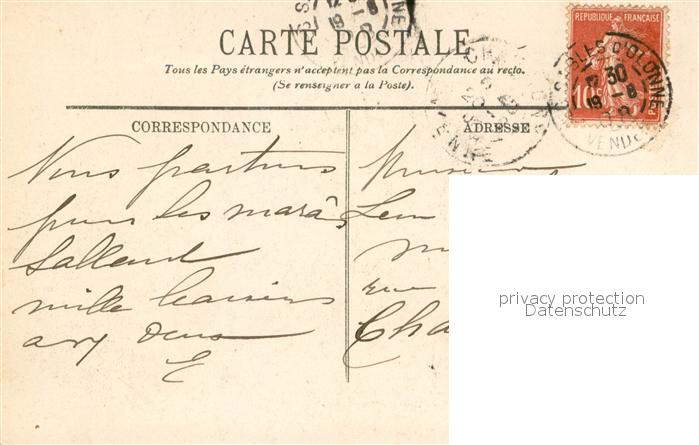 CARTE POSTALE
Tous les Pays étrangers n'acceptent pas la Correspondance au recto.
(Se renseigner à la Poste).
CORRESPONDANCE
ADRESSE
REPUBLIQUE FRANÇAISE
10c
POSTES
SABLES D'OLONNE
12 30
19 -8
VENDÉE
Nous partons
pour les marais
Salland
mille baisers
aux deux
E
Monsieur
Leon
rue
Cha
privacy protection
Datenschutz